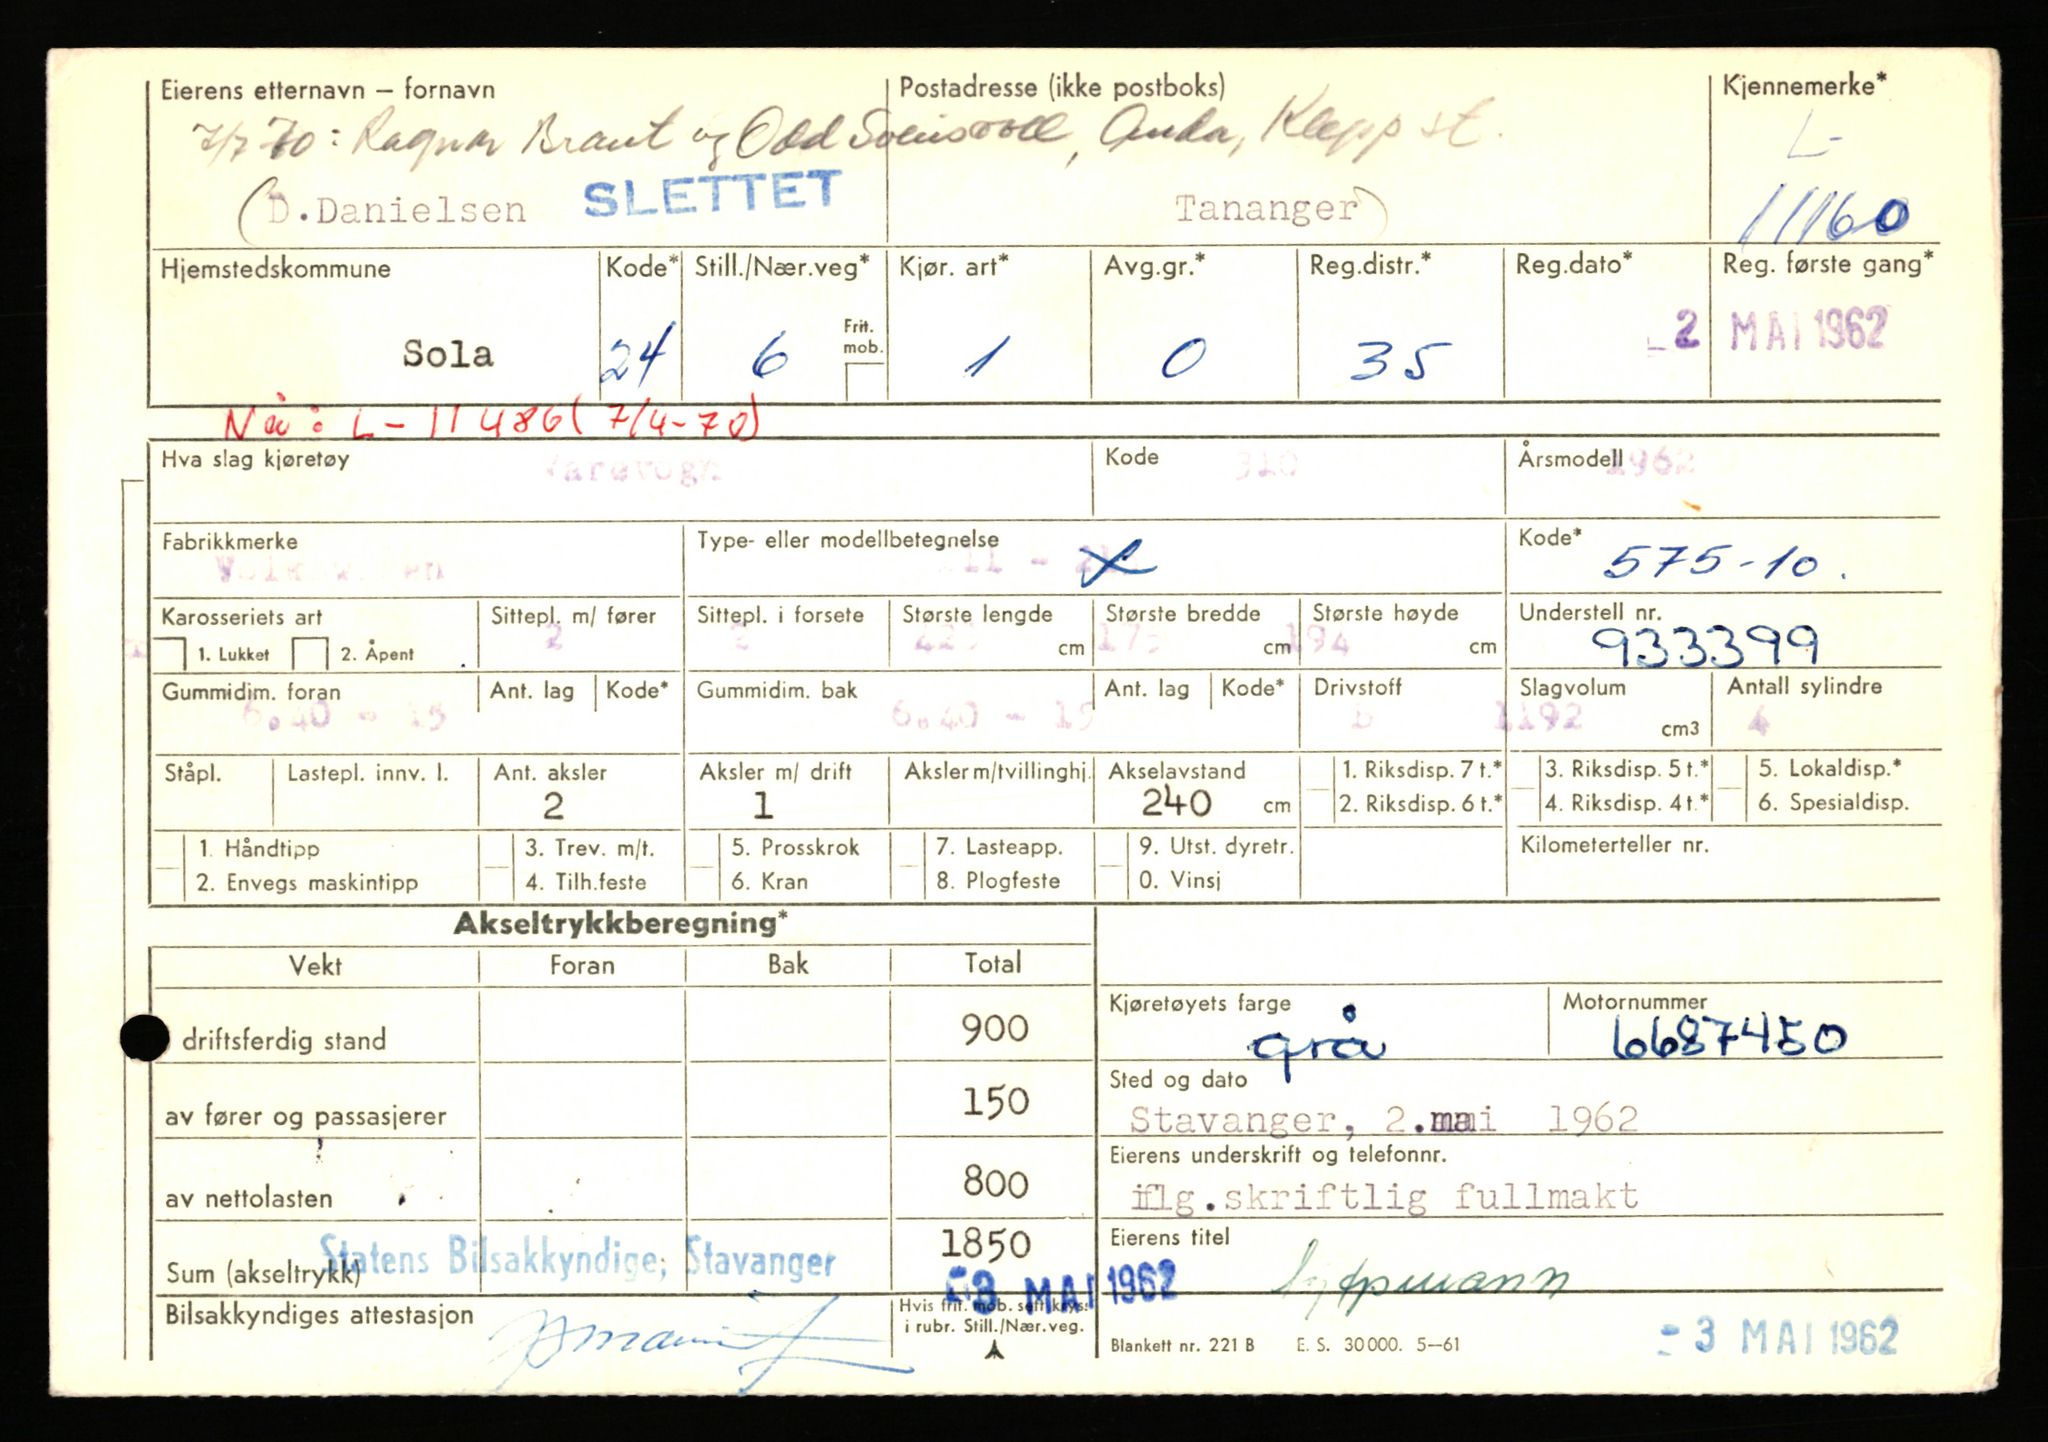 Eierens etternavn – fornavn Postadresse (ikke postboks) Kjennemerke*
7/7 70: Ragnar Braut og Odd Svensvoll, Anda, Klepp st. L-
(D.Danielsen SLETTET Tananger) 11160
Hjemstedskommune Kode* Still./Nær.veg* Kjør. art* Avg.gr.* Reg.distr.* Reg.dato* Reg. første gang*
Frit. mob.
Sola 24 6 1 0 35 -2 MAI 1962
Nå: L-11486 (7/4-70)
Hva slag kjøretøy Varevogn Kode 310 Årsmodell 1962
Fabrikkmerke Type- eller modellbetegnelse Kode*
Volkswagen 575-10.
Karosseriets art Sittepl. m/ fører Sittepl. i forsete Største lengde Største bredde Største høyde Understell nr.
1. Lukket 2. Åpent 2 2 cm 175 cm 194 cm 933399
Gummidim. foran Ant. lag Kode* Gummidim. bak Ant. lag Kode* Drivstoff Slagvolum Antall sylindre
6.40 - 15 6.40 - 15 B 1192 cm3 4
Ståpl. Lastepl. innv. l. Ant. aksler Aksler m/ drift Aksler m/tvillinghj. Akselavstand 1. Riksdisp. 7 t.* 3. Riksdisp. 5 t.* 5. Lokaldisp.*
2 1 240 cm 2. Riksdisp. 6 t.* 4. Riksdisp. 4 t.* 6. Spesialdisp.
1. Håndtipp 3. Trev. m/t. 5. Prosskrok 7. Lasteapp. 9. Utst. dyretr. Kilometerteller nr.
2. Envegs maskintipp 4. Tilh.feste 6. Kran 8. Plogfeste 0. Vinsj
Akseltrykkberegning*
Vekt Foran Bak Total
Kjøretøyets farge Motornummer
driftsferdig stand 900 grå 6687450
Sted og dato
av fører og passasjerer 150 Stavanger, 2.mai 1962
Eierens underskrift og telefonnr.
av nettolasten 800 iflg.skriftlig fullmakt
Statens Bilsakkyndige, Stavanger 1850 Eierens titel
Sum (akseltrykk) -3 MAI 1962
Bilsakkyndiges attestasjon Hvis frit. mob. sett kryss
i rubr. Still./Nær.veg. Blankett nr. 221 B E. S. 30 000. 5–61 -3 MAI 1962